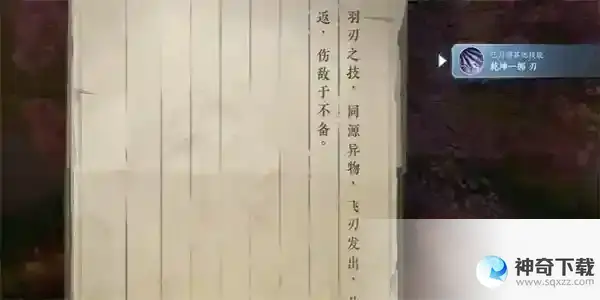 羽刃之技，同源异物，飞刃发出，
返，伤敌于不备。
乾坤一掷 刃
神奇下载
www.sqxzz.com